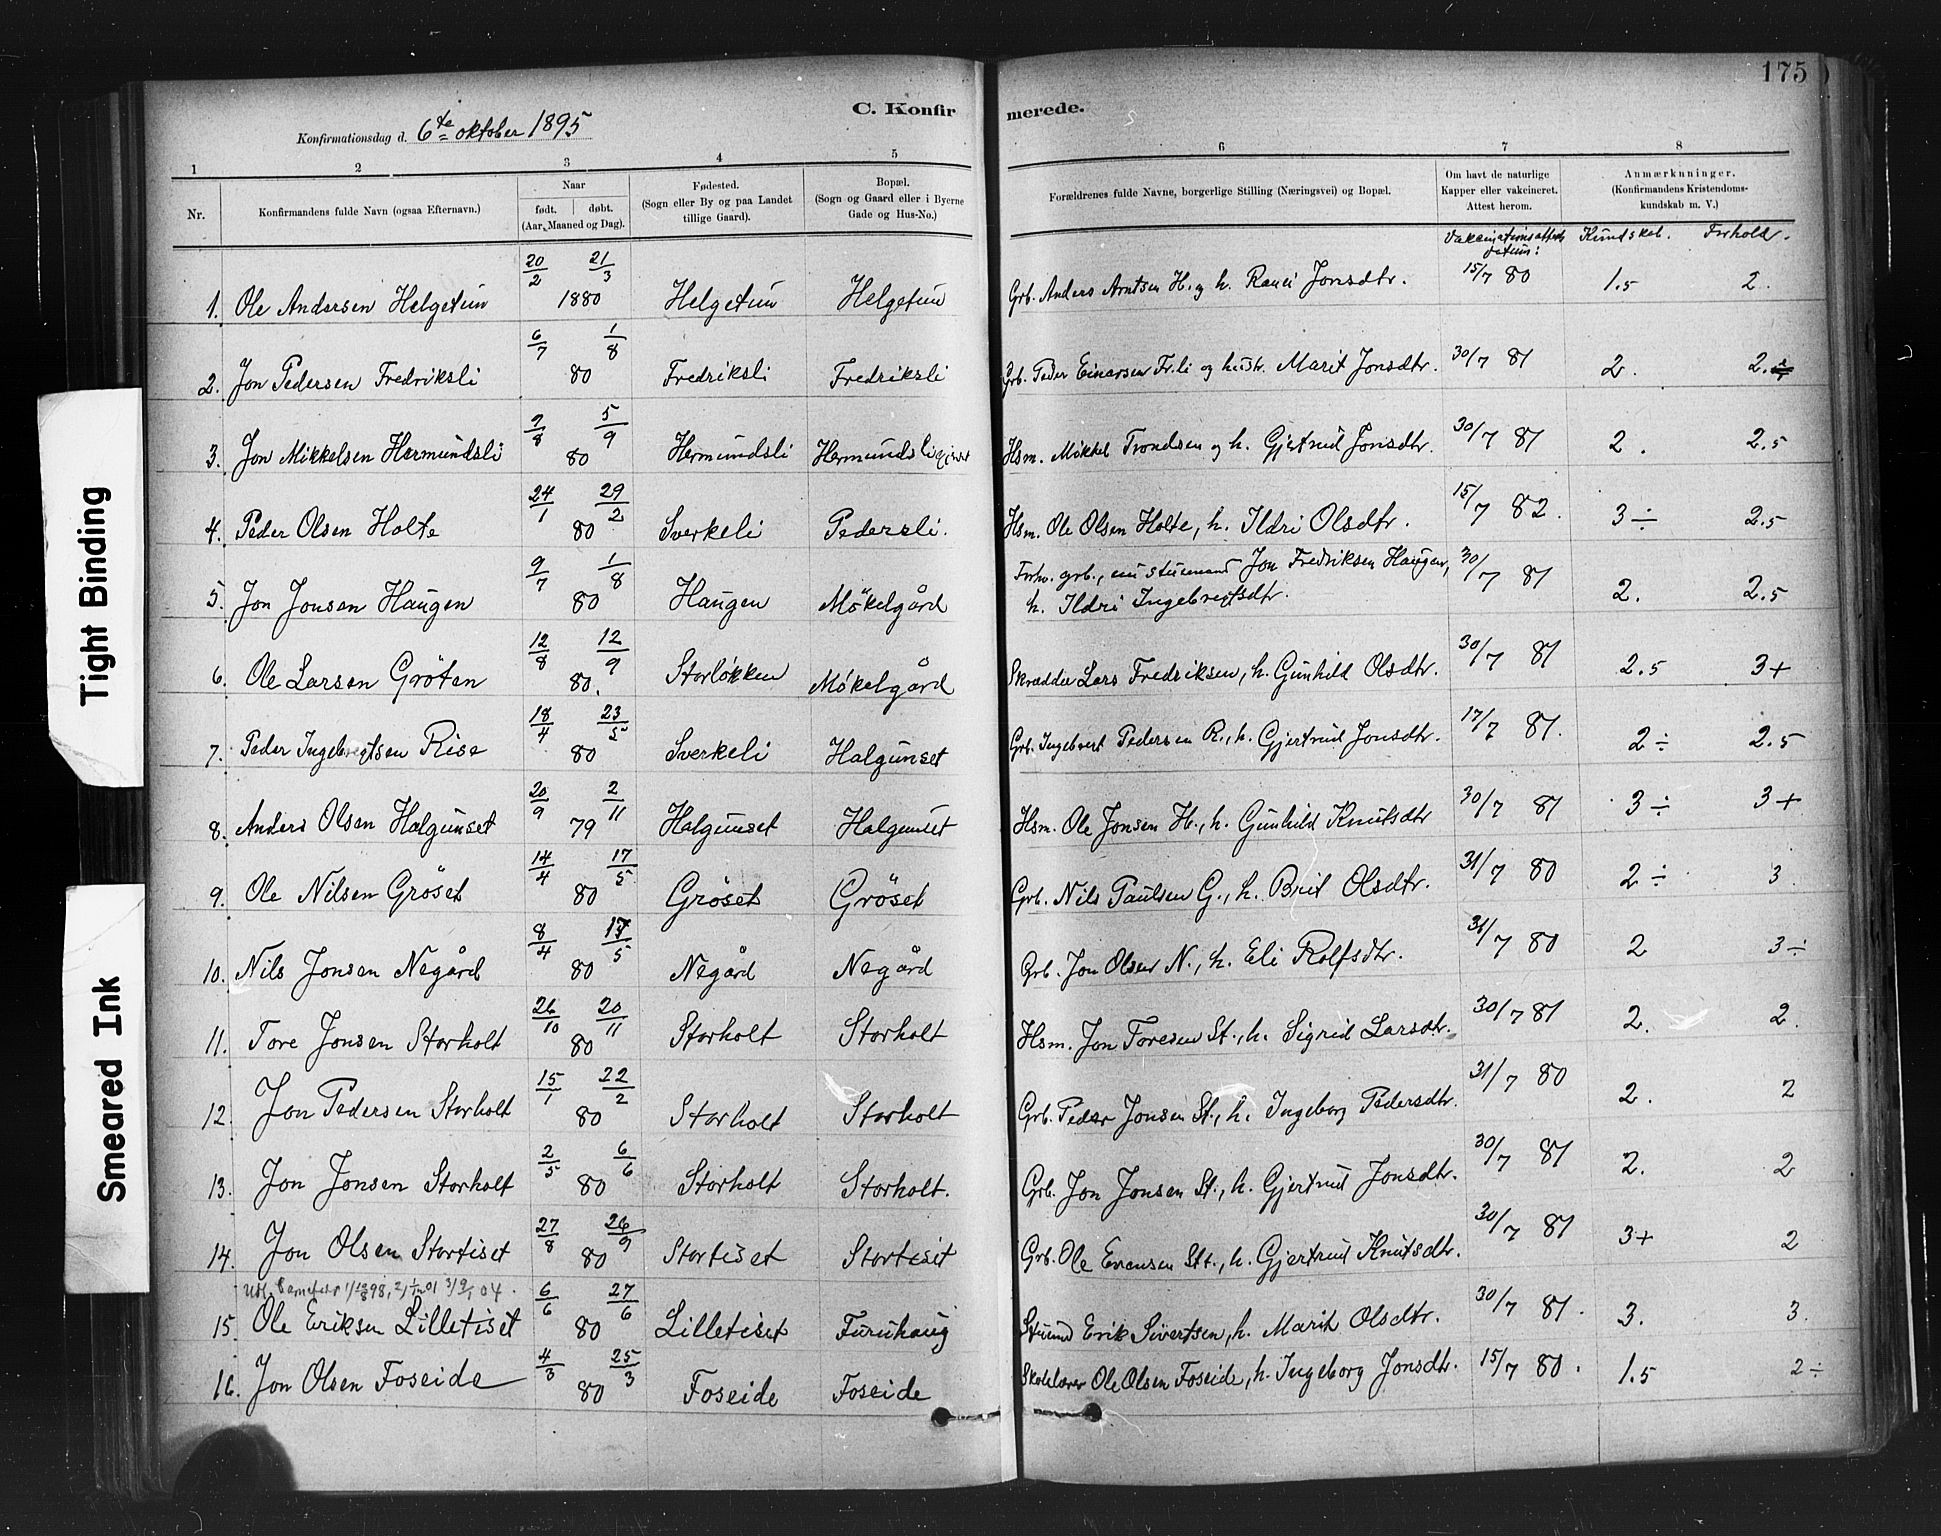 175
C. Konfirmerede.
Konfirmationsdag d. 6te oktober 1895
1 2 3 4 5 6 7 8
Nr. | Konfirmandens fulde Navn (ogsaa Efternavn.) | Naar født. døbt. (Aar, Maaned og Dag). | Fødested. (Sogn eller By og paa Landet tillige Gaard). | Bopæl. (Sogn og Gaard eller i Byerne Gade og Hus-No.) | Forældrenes fulde Navne, borgerlige Stilling (Næringsvei) og Bopæl. | Om havt de naturlige Kopper eller vakcineret. Attest herom. | Anmærkninger. (Konfirmandens Kristendomskundskab m. V.)
Vakcinationsattest datum: Kundskab. Forhold.
1. Ole Andersen Helgetun 20/2 21/3 1880 Helgetun Helgetun Grb. Anders Arntsen H. og h. Ranei Jonsdtr. 15/7 80 1.5 2.
2. Jon Pedersen Fredriksli 6/7 1/8 80 Fredriksli Fredriksli Grb. Peder Einarsen Fr.li og hustr. Marit Jonsdtr. 30/7 81 2. 2.
3. Jon Mikkelsen Hermundsli 7/8 5/9 80 Hermundsli Hermundsli Hsm. Mikkel Trondsen og h. Gjertrud Jonsdtr. 30/7 81 2. 2.5
4. Peder Olsen Holte 24/1 29/2 80 Sverkeli Pedersli. Hsm. Ole Olsen Holte, h. Ildri Olsdtr. 15/7 82. 3÷ 2.5
5. Jon Jonsen Haugen 9/7 1/8 80 Haugen Mökelgård Forhv. grb., nu stuemand Jon Fredriksen Haugen, h. Ildri Ingebregtsdtr. 30/7 81 2. 2.5
6. Ole Larsen Gröten 12/8 12/9 80. Storløkken Møkelgård Skrædder Lars Fredriksen, h. Gunhild Olsdtr. 30/7 81 2.5 3+
7. Peder Ingebregtsen Rise 18/4 23/5 80 Sverkeli Halgunset Grb. Ingebregt Pedersen R., h. Gjertrud Jonsdtr. 17/7 81. 2÷ 2.5
8. Anders Olsen Halgunset 20/9 2/11 79 Halgunset Halgunset Hsm. Ole Jonsen H., h. Gunhild Knutsdtr 30/7 81 3÷ 3+
9. Ole Nilsen Gröset 14/4 17/5 80 Gröset Gröset Grb. Nils Paulsen G., h. Brit Olsdtr. 31/7 80 2÷ 3
10. Nils Jonsen Negård 8/4 17/5 80 Negård Negård Grb. Jon Olsen N., h. Eli Rolfsdtr. 31/7 80 2 3÷
11. Tore Jonsen Storholt 26/10 20/11 80 Storholt Storholt Hsm. Jon Toresen St., h. Sigrid Larsdtr. 30/7 81 2. 2.
12. Jon Pedersen Storholt 15/1 22/2 80 Storholt Storholt Grb. Peder Jonsen St., h. Ingeborg Pedersdtr. 31/7 80 2. 2
13. Jon Jonsen Storholt 2/5 6/6 80 Storholt Storholt. Grb. Jon Jonsen St., h. Gjertrud Jonsdtr. 30/7 81 2. 2
14. Jon Olsen Stortiset 27/8 26/9 80 Stortiset Stortiset Grb. Ole Evensen Stt., h. Gjertrud Knutsdtr. 30/7 81 3+ 2
15. Ole Eriksen Lilletiset 6/6 27/6 80 Lilletiset Furuhaug Stuemd Erik Sivertsen, h. Marit Olsdtr. 30/7 81. 3. 3.
16. Jon Olsen Foseide 4/3 25/3 80 Foseide Foseide Skolelærer Ole Olsen Foseide, h. Ingeborg Jonsdtr. 15/7 80. 1.5 2÷
Tight Binding
Smeared Ink